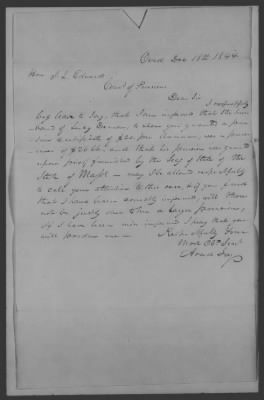 Ovid Dec 18th 1844
Hon J. L. Edwards
Com'r of Pensions
Dear Sir
I respectfully
beg leave to say, that I am informed that the hus-
band of Lucy Damon, to whom you granted a pen-
sion certificate of $20 per Annum, was a pension-
er of $23.66, and that his pension was granted
upon proof furnished by the Secy of State of the
State of Masst — may I be allowed respectfully
to call your attention to this case, & if you find
that I have been correctly informed, will there
not be justly due to her a larger pension,
If I have been mis informed I pray that you
will pardon me —
Respectfully Yours
Most Obt Servt